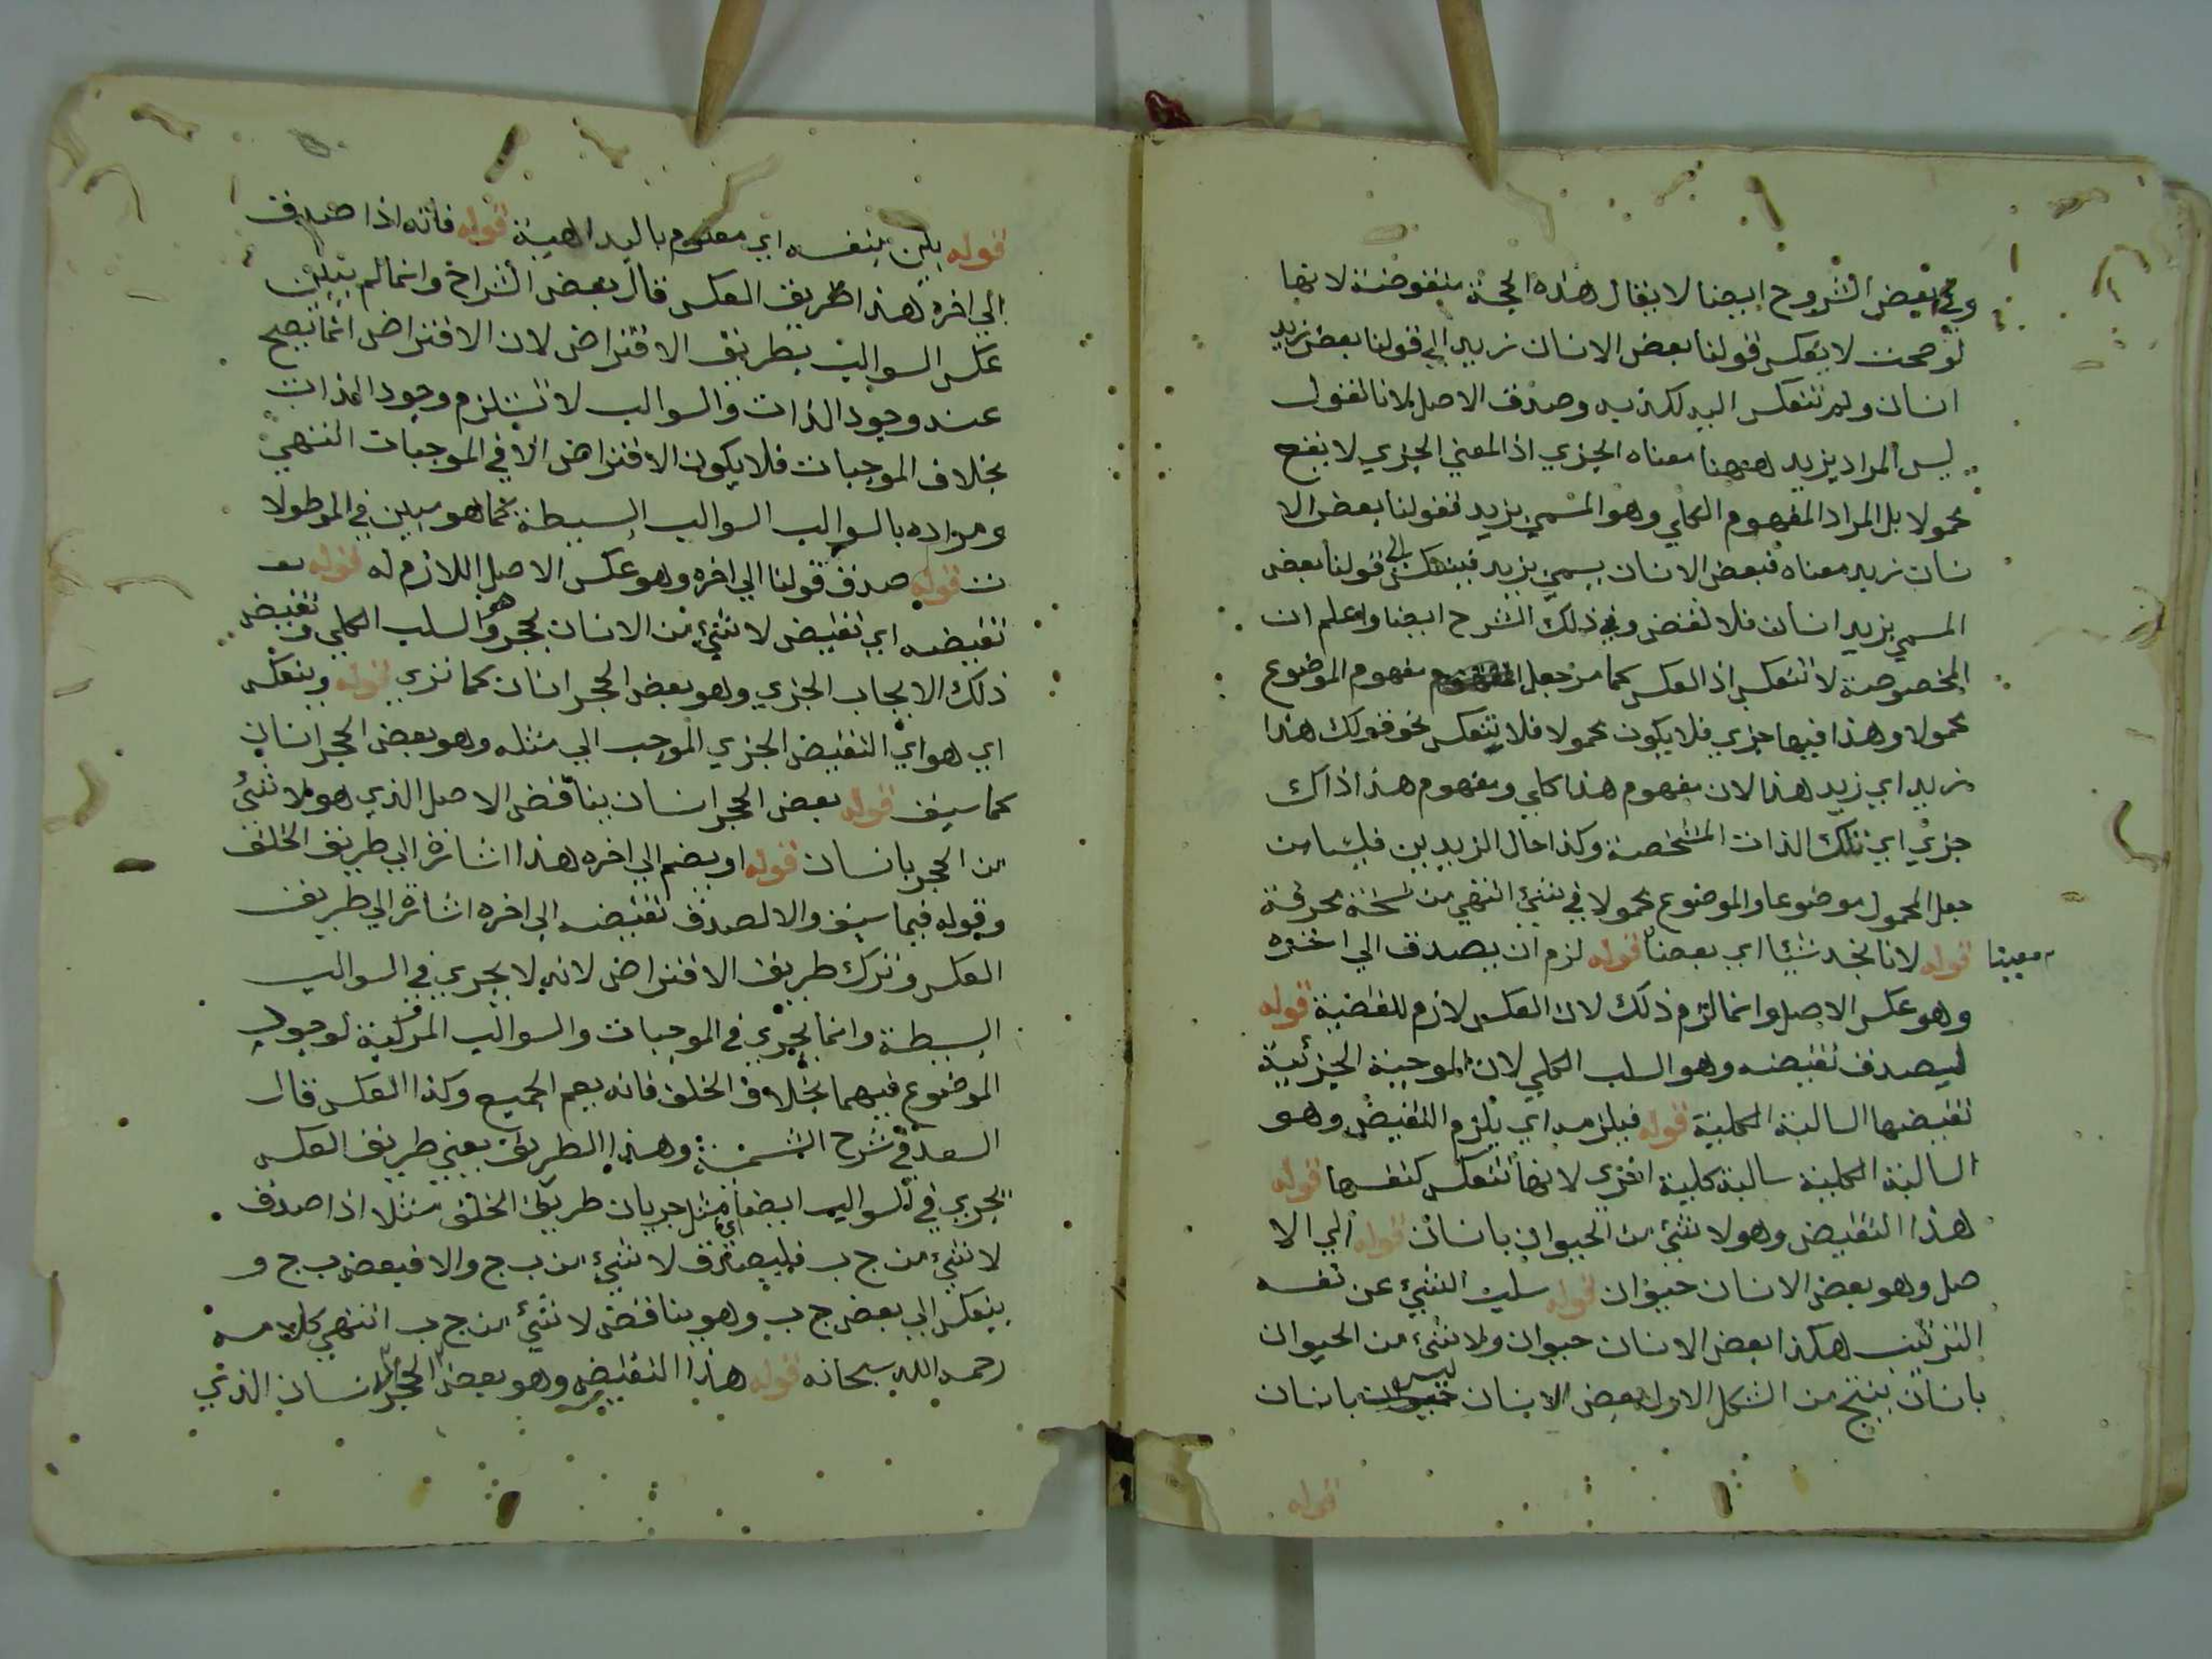 وفي بعض الشروح ايضا لا يقال هذه الحجة منقوضة لانها
لو صحت لا يعكس قولنا بعض الانسان زيد الي قولنا بعض زيد
انسان ولم تنعكس اليه لكذبه وصدق الاصل لانا نقول
ليس المراد بزيد ههنا معناه الجزي اذ المعني الجزي لا يقع
محمولا بل المراد المفهوم الكلي وهو المسمي بزيد فقولنا بعض الا
نسان زيد معناه فبعض الانسان يسمي بزيد فينعكس الي قولنا بعض
المسمي بزيد انسان فلا نقض وفي ذلك الشرح ايضا واعلم ان
المخصوصة لا تنعكس اذ العكس كما مر جعل مفهوم الموضوع
محمولا وهذا فيها جزي فلا يكون محمولا فلا ينعكس نحو قولك هذا
زيد اي زيد هذا لان مفهوم هذا كلي ومفهوم هذا ذاك
جزي اي تلك الذات المشخصة وكذا حال الزيدين فليسا من
جعل المحمول موضوعا والموضوع محمولا في شئ انتهي من نسخة محرفة
قوله لانا نجد شيئا اي بعضا معينا قوله لزم ان يصدق الي اخره
وهو عكس الاصل وانما لزم ذلك لان العكس لازم للقضية قوله
ليصدق نقيضه وهو السلب الكلي لان الموجبة الجزئية
نقيضها السالبة الكلية قوله فيلزمه اي يلزم النقيض وهو
السالبة الكلية سالبة كلية اخري لانها تنعكس كنفسها قوله
هذا النقيض وهو لا شئ من الحيوان بانسان قوله الي الا
صل وهو بعض الانسان حيوان قوله سلب الشئ عن نفسه
الترتيب هكذا بعض الانسان حيوان ولا شئ من الحيوان
بانسان ينتج من الشكل الاول بعض الانسان ليس بانسان
قوله
قوله بين بنفسه اي معلوم بالبداهية قوله فانه اذا صدق
الي اخره هذا طريق العكس قال بعض الشراح وانما لم يتبين
عكس السوالب بطريق الافتراض لان الافتراض انما يصح
عند وجود الذات والسوالب لا تستلزم وجود الذات
بخلاف الموجبات فلا يكون الافتراض الا في الموجبات انتهي
ومراده بالسوالب السوالب البسيطة كما هو مبين في المطولا
ت قوله صدق قولنا الي اخره وهو عكس الاصل اللازم له قوله
نقيضه اي نقيض لا شئ من الانسان بحجر وهو السلب الكلي ونقيض
ذلك الايجاب الجزي وهو بعض الحجر انسان كما تري قوله وينعكس
اي هو اي النقيض الجزي الموجب الي مثله وهو بعض الحجر انسان
كما سبق قوله بعض الحجر انسان يناقض الاصل الذي هو لا شئ
من الحجر بانسان قوله او يضم الي اخره هذا اشارة الي طريق الخلف
وقوله فيما سبق والا لصدق نقيضه الي اخره اشارة الي طريق
العكس وترك طريق الافتراض لانه لا يجري في السوالب
البسيطة وانما يجري في الموجبات والسوالب المركبة لوجود
الموضوع فيهما بخلاف الخلف فانه يعم الجميع وكذا العكس قال
السعد في شرح الشمسية وهذا الطريق يعني طريق العكس
يجري في السوالب ايضا مثل جريان طريق الخلف مثلا اذا صدق
لا شئ من ج ب فليصدق لا شئ من ب ج والا فبعض ب ج و
ينعكس الي بعض ج ب وهو يناقض لا شئ من ج ب انتهي كلامه
رحمه الله سبحانه قوله هذا النقيض وهو بعض الحجر انسان الذي